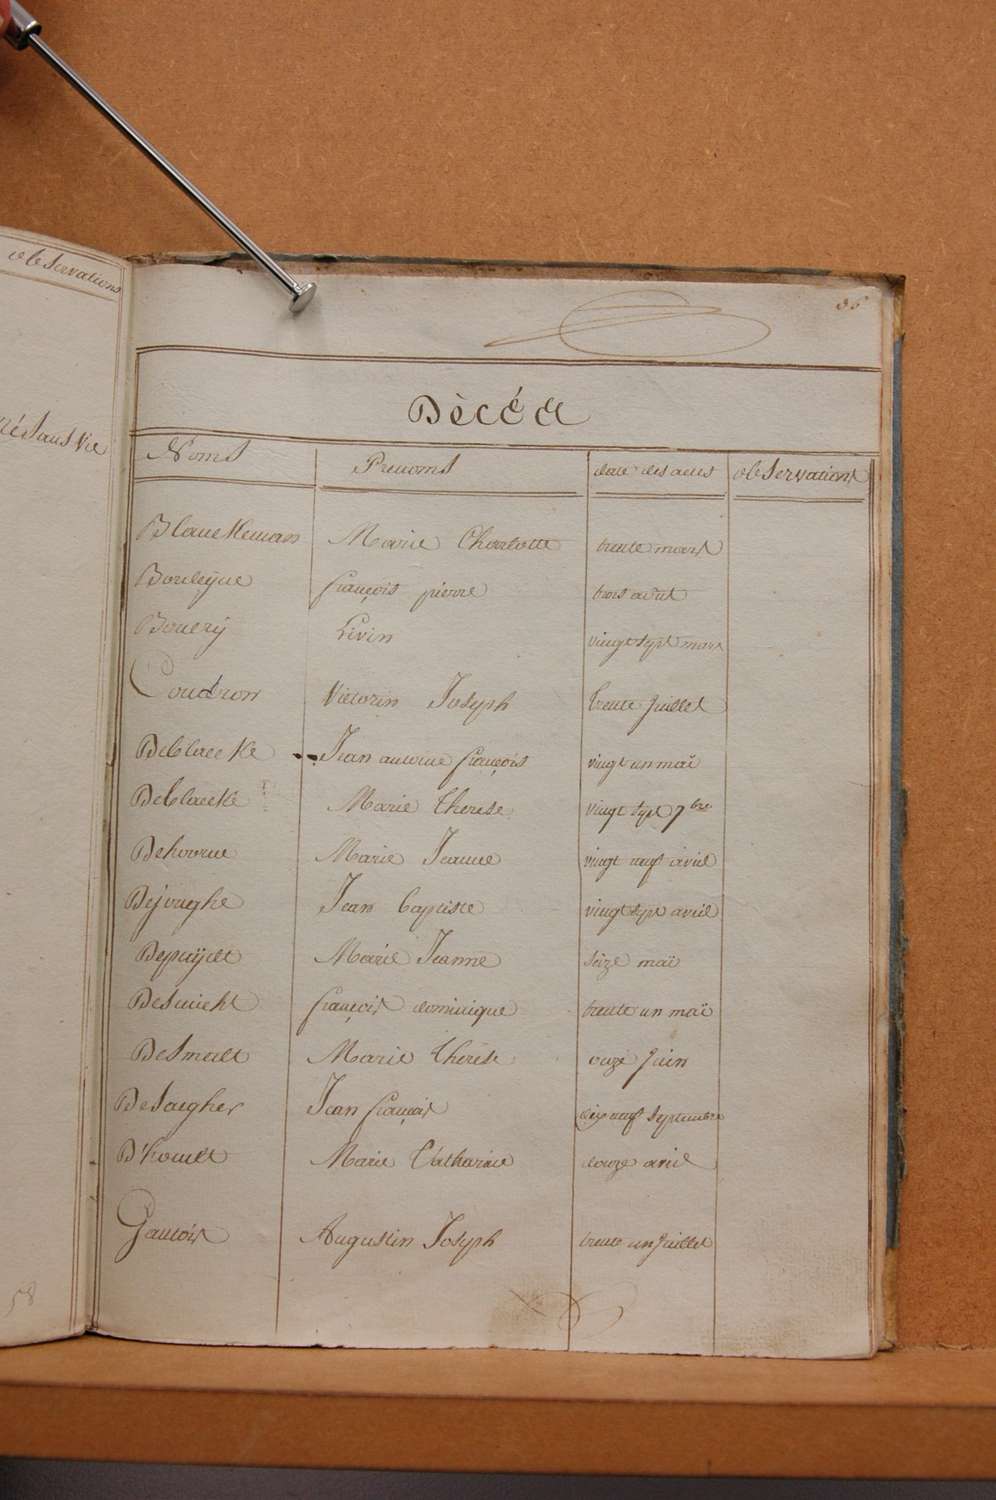 observations
né sans vie
58
86
Dècéde
Noms Prenoms date des actes observations
Blanckeman Marie Charlotte trente mars
François pierre trois avril
Bouery Livin vingt sept mars
Coudron Victorin Joseph trente Juillet
Deblaecke Jean antoine François vingt un maï
Deblaecke Marie therese vingt sept 7bre
Dehoorne Marie Jeanne vingt neuf avril
Dejonghe Jean baptiste vingt sept avril
Depuijdt Marie Jeanne seize maï
François dominique trente un maï
Desmedt Marie therese onze Juin
Desaegher Jean François dix neuf Septembre
D'hondt Marie Catharine douze avril
Gantois Augustin Joseph trente un Juillet